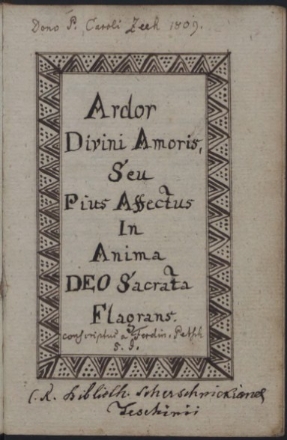 Dono P. Caroli Zeek 1809.
Ardor
Divini Amoris,
Seu
Pius Affectus
In
Anima
DEO Sacrata
Flagrans.
conscriptus a Ferdin.
S. J.
C. R. Biblioth. Scherschnickianae
Teschinii